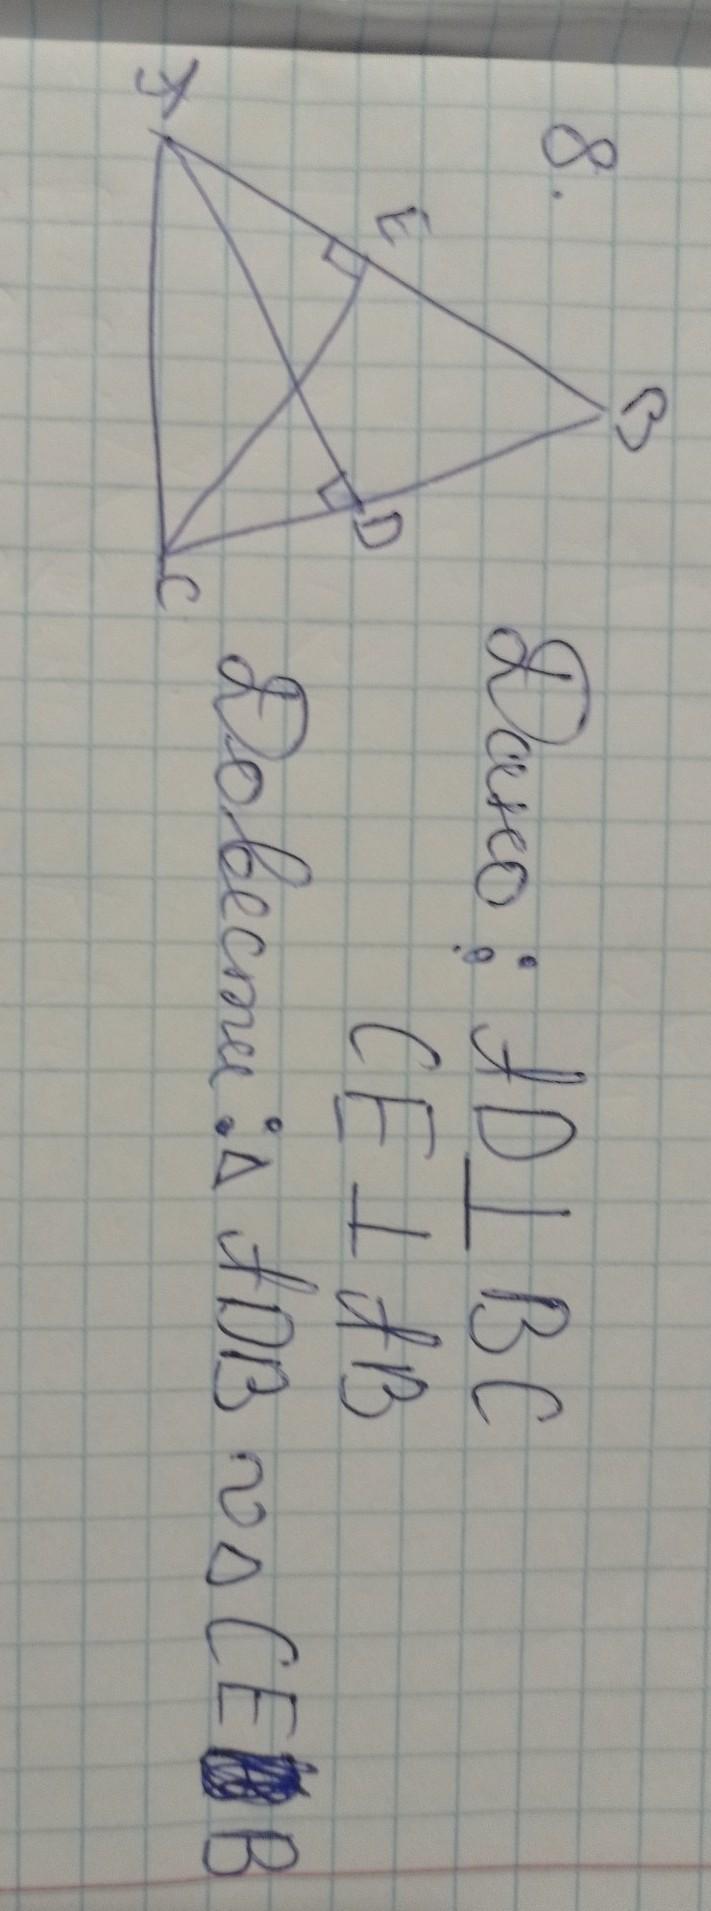 8.
B
E
D
A
C
Дано: AD ⊥ BC
CE ⊥ AB
Довести: Δ ADB ~ Δ CEB